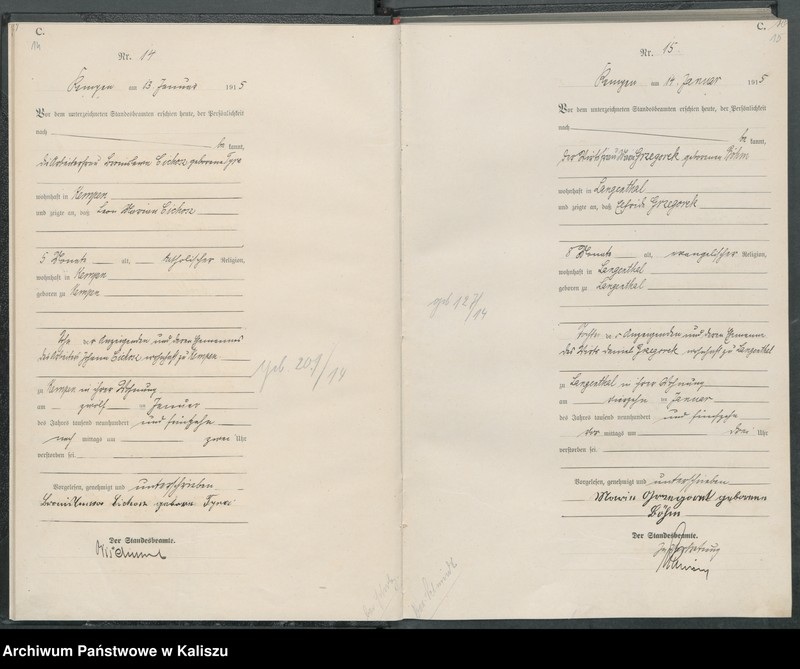 C.
14
Nr. 14
Kempen am 13. Januar 1915
Vor dem unterzeichneten Standesbeamten erschien heute, der Persönlichkeit
nach
be kannt,
die Arbeiterfrau Bronislawa Cichosz geborene
wohnhaft in Kempen
und zeigte an, daß Leon Marian Cichosz
5 Monate alt, katholischer Religion,
wohnhaft in Kempen
geboren zu Kempen
der Anzeigenden und deren Ehemannes
des Arbeiters Johann Cichosz wohnhaft zu Kempen
zu Kempen in ihrer Wohnung
am zwölf ten Januar
des Jahres tausend neunhundert und fünfzehn
nach mittags um zwei Uhr
verstorben sei.
Vorgelesen, genehmigt und unterschrieben
Cichosz geborene
Der Standesbeamte.
geb. 209/14
C.
15
Nr. 15.
Kempen am 14. Januar 1915
Vor dem unterzeichneten Standesbeamten erschien heute, der Persönlichkeit
nach
be kannt,
Maria Grzegorek geborene Böhm
wohnhaft in Langenthal
und zeigte an, daß Elfride Grzegorek
8 Monate alt, evangelischer Religion,
wohnhaft in Langenthal
geboren zu Langenthal
Tochter der Anzeigenden und deren Ehemannes
des Wirts Daniel Grzegorek, wohnhaft zu Langenthal
zu Langenthal in ihrer Wohnung
am vierzehn ten Januar
des Jahres tausend neunhundert und fünfzehn
vor mittags um drei Uhr
verstorben sei.
Vorgelesen, genehmigt und unterschrieben
Maria Grzegorek geborene
Böhm
Der Standesbeamte.
In Vertretung
geb 127/14
Archiwum Państwowe w Kaliszu